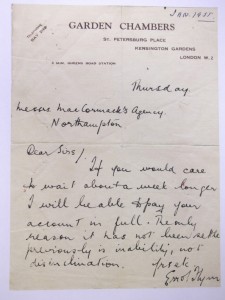 JAN. 1935
GARDEN CHAMBERS
TELEPHONE
ST. PETERSBURG PLACE
KENSINGTON GARDENS
LONDON W. 2
Thursday.
Messrs MacCormack's Agency.
Northampton
Dear Sirs/
If you would care
to wait about a week longer
I will be able to pay your
account in full. The only
reason it has not been settled
previously is inability, not
disinclination.
Errol Flynn